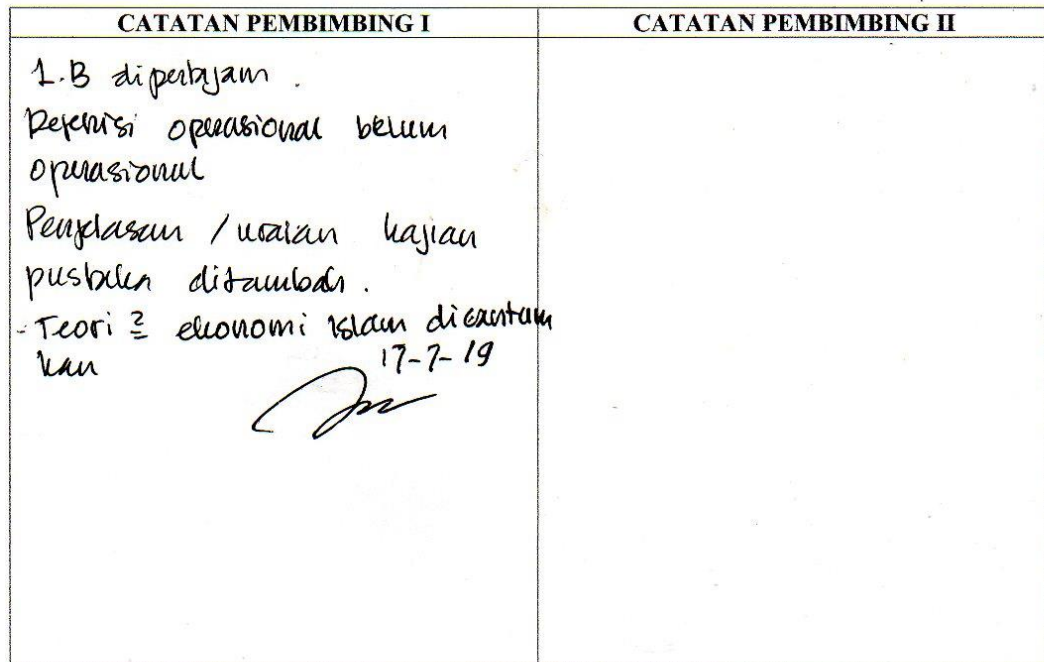 CATATAN PEMBIMBING I
CATATAN PEMBIMBING II
1.B dipertajam.
Defenisi operasional belum
operasional
Penjelasan / uraian kajian
pustaka ditambah.
- Teori 2 ekonomi Islam dicantum
kan
17-7-19